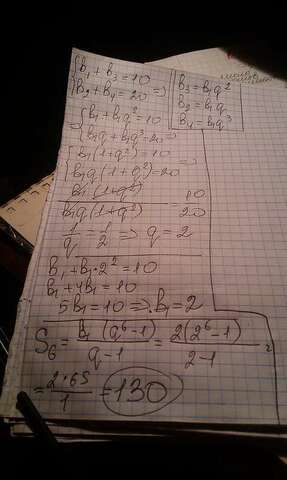 { b₁ + b₃ = 10
{ b₂ + b₄ = 20 =>
b₃ = b₁q²
b₂ = b₁q
b₄ = b₁q³
{ b₁ + b₁q² = 10
=> { b₁q + b₁q³ = 20 =>
{ b₁(1+q²) = 10 =>
{ b₁q(1+q²) = 20
b₁(1+q²) / b₁q(1+q²) = 10/20
1/q = 1/2 => q = 2
b₁ + b₁·2² = 10
b₁ + 4b₁ = 10
5b₁ = 10 => b₁ = 2
S₆ = b₁(q⁶-1) / q-1 = 2(2⁶-1) / 2-1 =
= 2·65 / 1 = 130